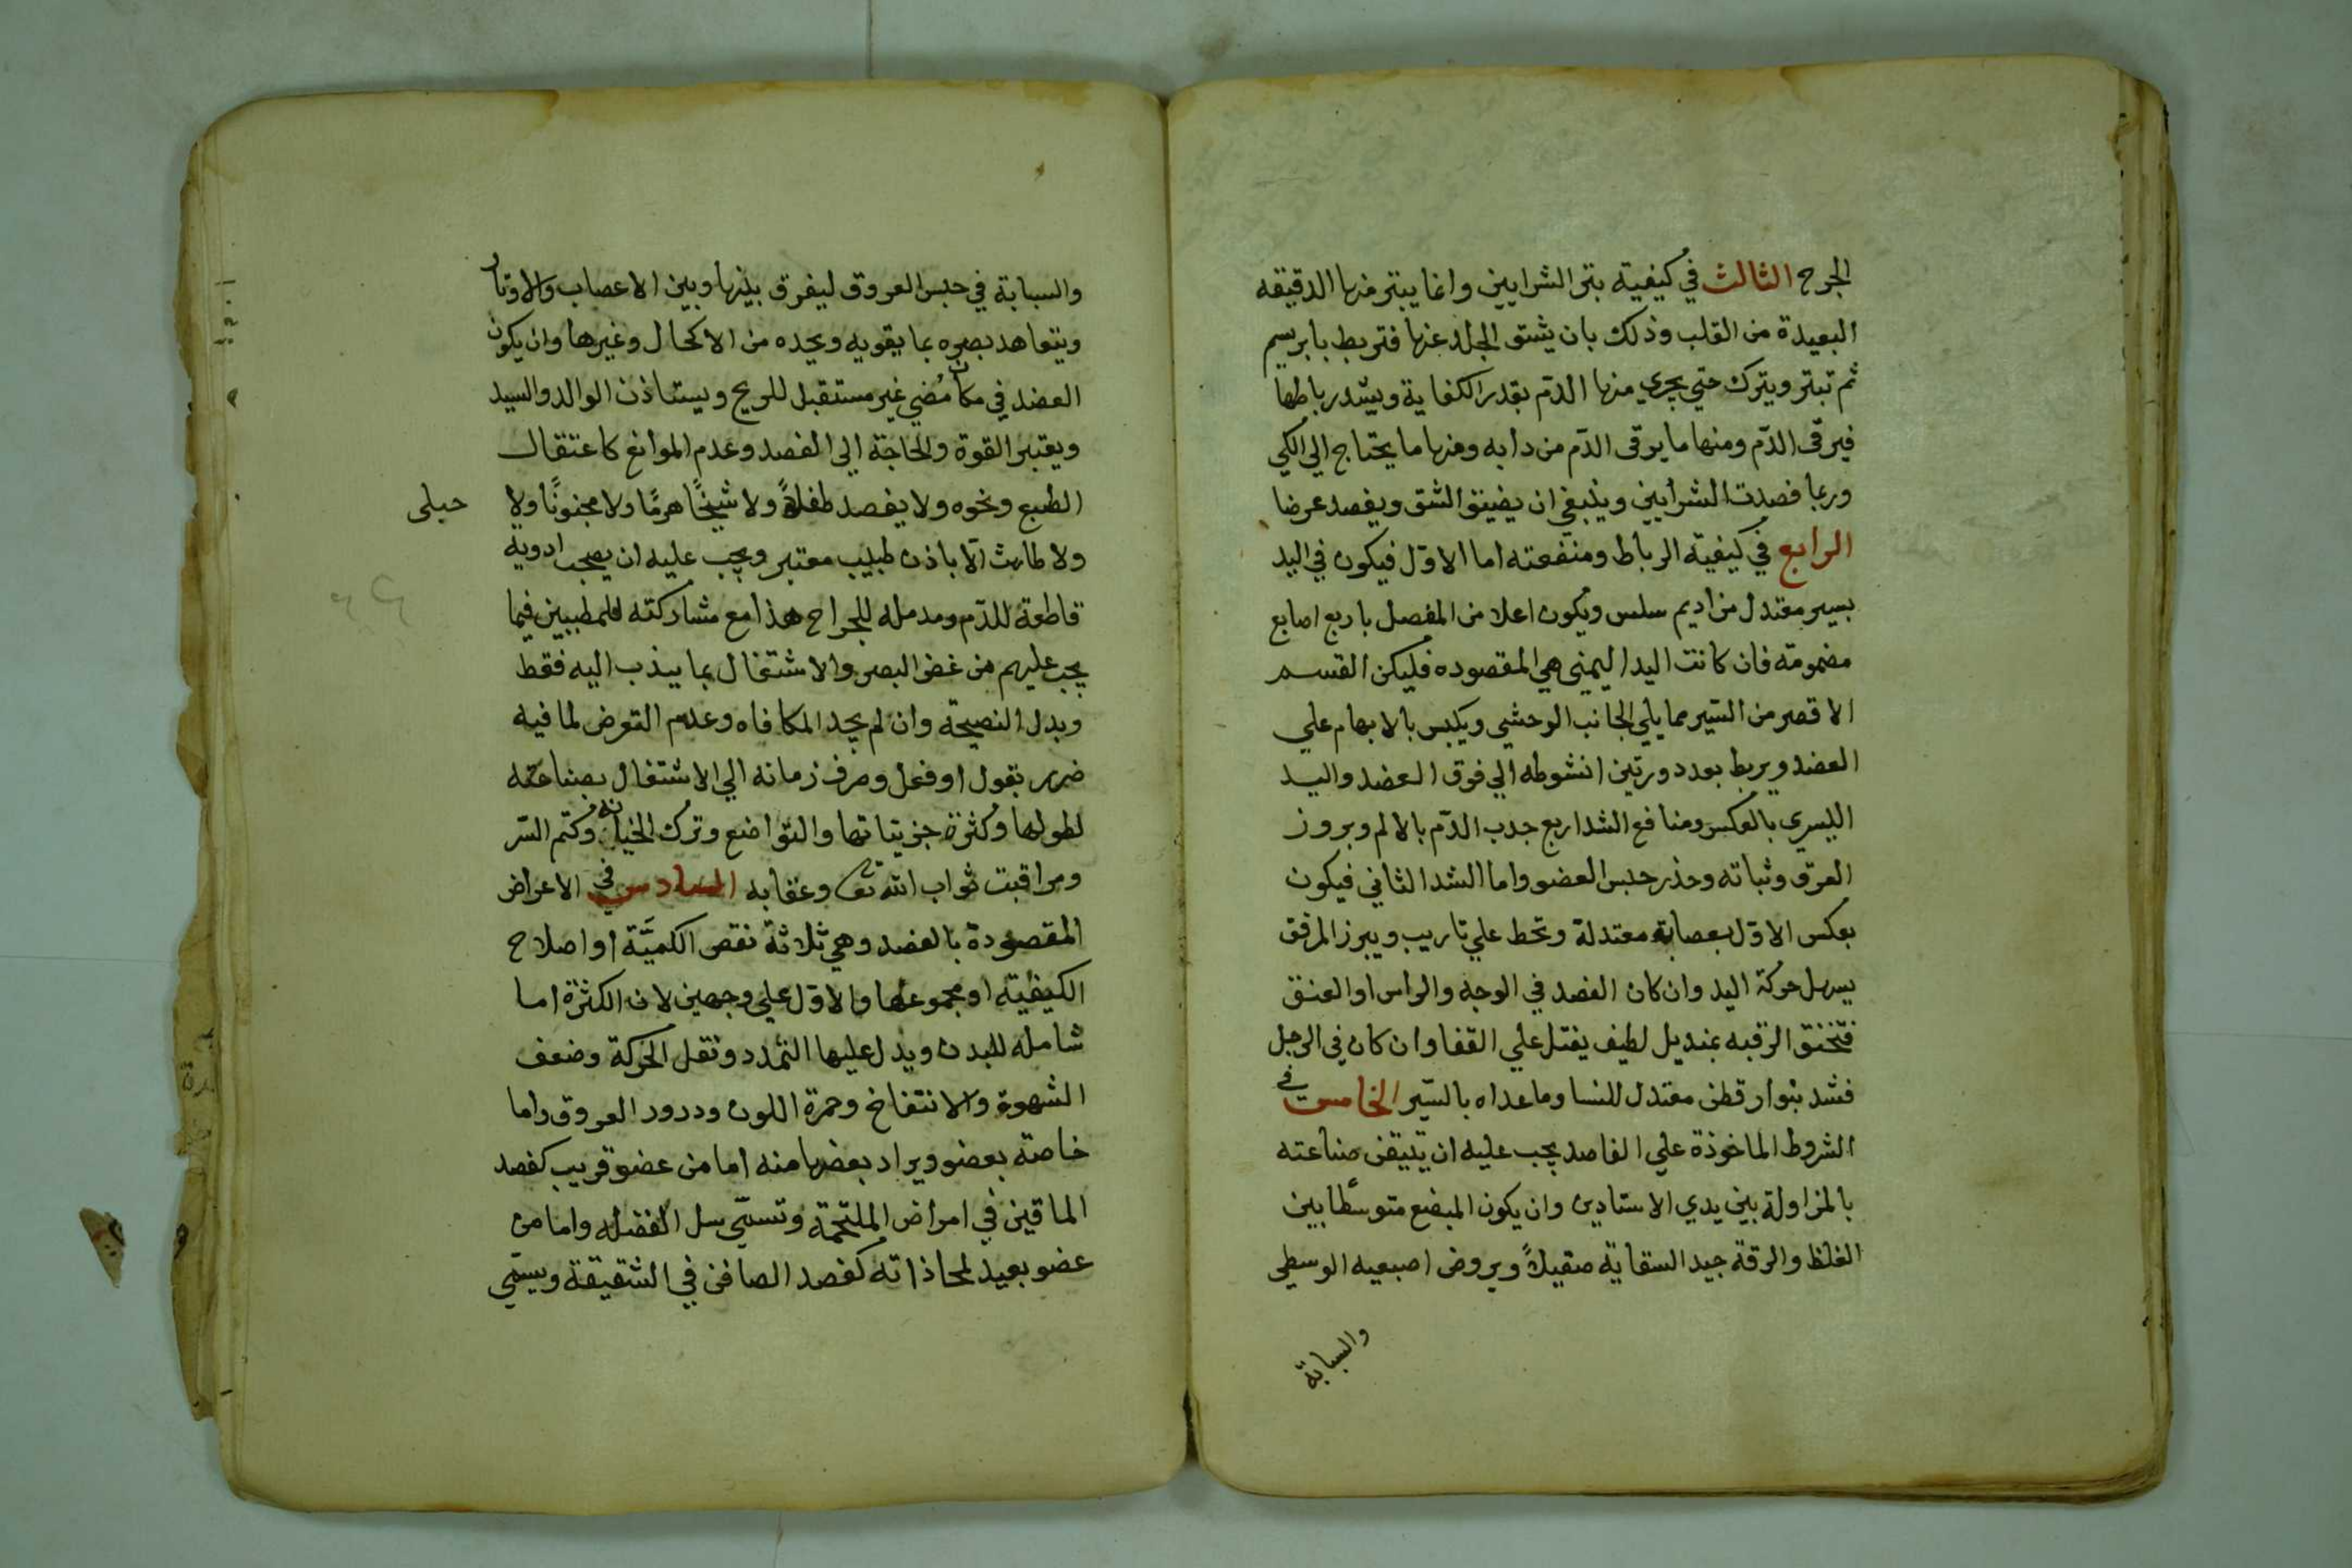 الجرح الثالث في كيفية بتر الشرايين وانما يبتر منها الدقيقه
البعيدة من القلب وذلك بان يشق الجلد عنها فتربط بابريسم
ثم تبتر ويترك حتي يجري منها الدّم بقدر الكفاية ويشد رباطها
فيرقى الدّم ومنها ما يرقى الدّم من دابه ومنها ما يحتاج الي الكي
وربما فصدت الشرايين وينبغي ان يضيق الشق ويفصد عرضا
الرابع في كيفيّة الرباط ومنفعته اما الاوّل فيكون في اليد
بسير معتدل من اديم سلس ويكون اعلا من المفصل باربع اصابع
مضمومة فان كانت اليد اليمنى هي المقصوده فليكن القسم
الاقصر من السّير مما يلي الجانب الوحشي ويكبس بالابهام علي
العضد ويربط بعد دورتين انشوطه الي فوق العضد واليد
اليسري بالعكس ومنافع الشد اربع جدب الدّم بالالم وبروز
العرق وثباته وحذر حبس العضو واما الشد الثاني فيكون
بعكس الاوّل بعصابة معتدلة وتحط علي تاريب ويبرز المرفق
يسهل حركة اليد وان كان الفصد في الوجه والراس او العنق
فتخنق الرقبه بمنديل لطيف يفتل علي القفا وان كان في الرجل
فشد بنوار قطن معتدل للنسا وما عداه بالسّير الخامس في
الشروط الماخوذة علي الفاصد يجب عليه ان يتيقن صناعته
بالمزاولة بين يدي الاستادين وان يكون المبضع متوسّطا بين
الغلظ والرقة جيد السقاية صقيلاً ويروض اصبعيه الوسطي
والسبابة
والسبابة في حبس العروق ليفرق بينها وبين الاعصاب والاوتار
ويتعاهد بصره بما يقويه ويحده من الاكحال وغيرها وان يكون
الفصد في مكان مُضي غير مستقبل للريح ويستاذن الوالد والسيد
ويعتبر القوة والحاجة الي الفصد وعدم الموانع كاعتقال
الطبع ونحوه ولا يفصد طفلةً ولا شيخًا هرمًا ولا مجنونًا ولا
حبلى
ولا طامث الّا باذن طبيب معتبر ويجب عليه ان يصحب ادوية
قاطعة للدّم ومدمله للجراح هذا مع مشاركته للمطببين فيما
يجب عليهم من غض البصر والاشتغال بما يندب اليه فقط
وبدل النصيحة وان لم يجد المكافاه وعدم التعرض لما فيه
ضرر بقول او فعل وصرف زمانه الي الاشتغال بصناعته
لطولها وكثرة جزيتاتها والتواضع وترك الخيانه وكتم السّر
ومراقبت ثواب الله تعا وعقابه السادس في الاعراض
المقصودة بالفصد وهي ثلاثة نقص الكميَّة او اصلاح
الكيفيّة او مجموعها والاوّل علي وجهين لان الكثرة اما
شامله للبدن ويدل عليها التمدد وثقل الحركة وضعف
الشهوة والانتفاخ وحمرة اللون ودرور العروق واما
خاصة بعضو ويراد بعضها منه اما من عضو قريب كفصد
الماقين في امراض الملتحمة وتسمّي سل الفضله واما من
عضو بعيد لمحاذاته كفصد الصافن في الشقيقة ويسمّي